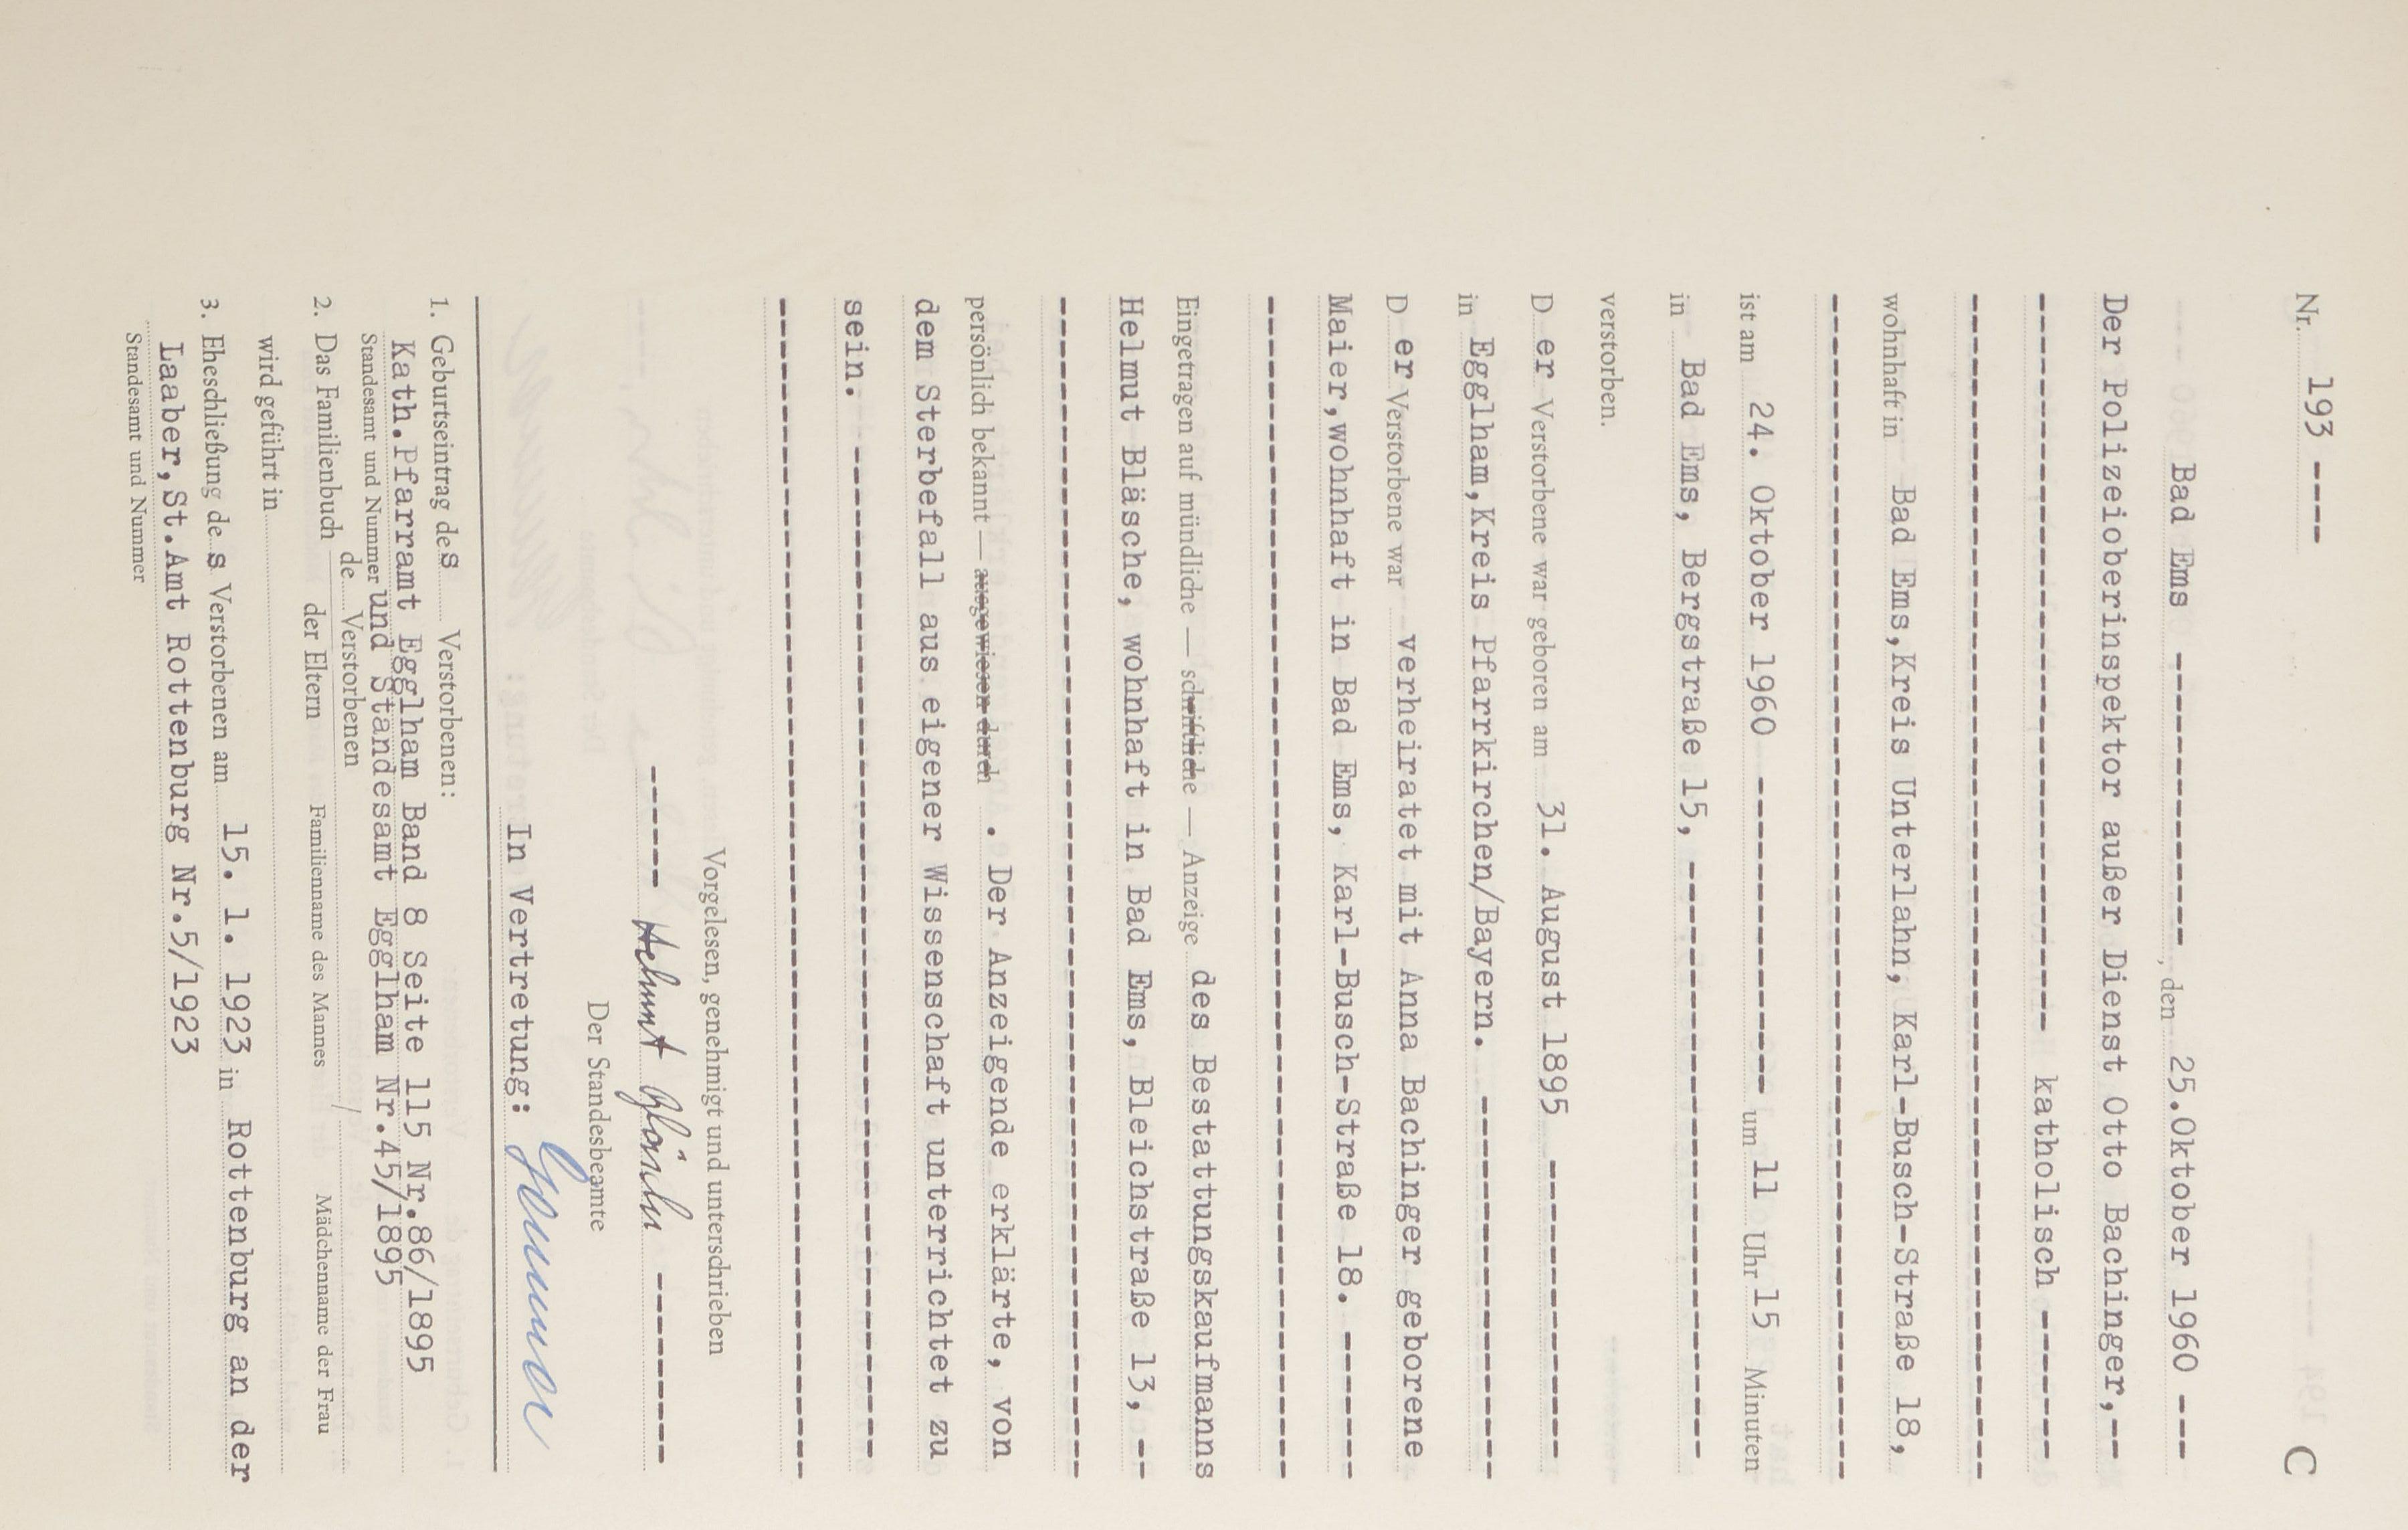 Nr. 193 ---- C
Bad Ems -------------, den 25.Oktober 1960 ---
Der Polizeioberinspektor außer Dienst Otto Bachinger,--
-------------------------------- katholisch ------
wohnhaft in Bad Ems,Kreis Unterlahn, Karl-Busch-Straße 18,
ist am 24. Oktober 1960 -------------- um 11 Uhr 15 Minuten
in Bad Ems, Bergstraße 15, --------------------------
verstorben.
D er Verstorbene war geboren am 31. August 1895 -------------
in Egglham,Kreis Pfarrkirchen/Bayern. -----------------
D er Verstorbene war verheiratet mit Anna Bachinger geborene
Maier,wohnhaft in Bad Ems, Karl-Busch-Straße 18. ------
Eingetragen auf mündliche — schriftliche — Anzeige des Bestattungskaufmanns
Helmut Bläsche, wohnhaft in Bad Ems, Bleichstraße 13, --
persönlich bekannt — ausgewiesen durch . Der Anzeigende erklärte, von
dem Sterbefall aus eigener Wissenschaft unterrichtet zu
sein. ---------------------------------------------
Vorgelesen, genehmigt und unterschrieben
----- Helmut Bläsche --------
Der Standesbeamte
In Vertretung:
1. Geburtseintrag des Verstorbenen:
Kath.Pfarramt Egglham Band 8 Seite 115 Nr.86/1895
Standesamt und Nummer und Standesamt Egglham Nr.45/1895
de Verstorbenen
2. Das Familienbuch
der Eltern Familienname des Mannes / Mädchenname der Frau
wird geführt in
3. Eheschließung de s Verstorbenen am 15. 1. 1923 in Rottenburg an der
Laaber,St.Amt Rottenburg Nr.5/1923
Standesamt und Nummer